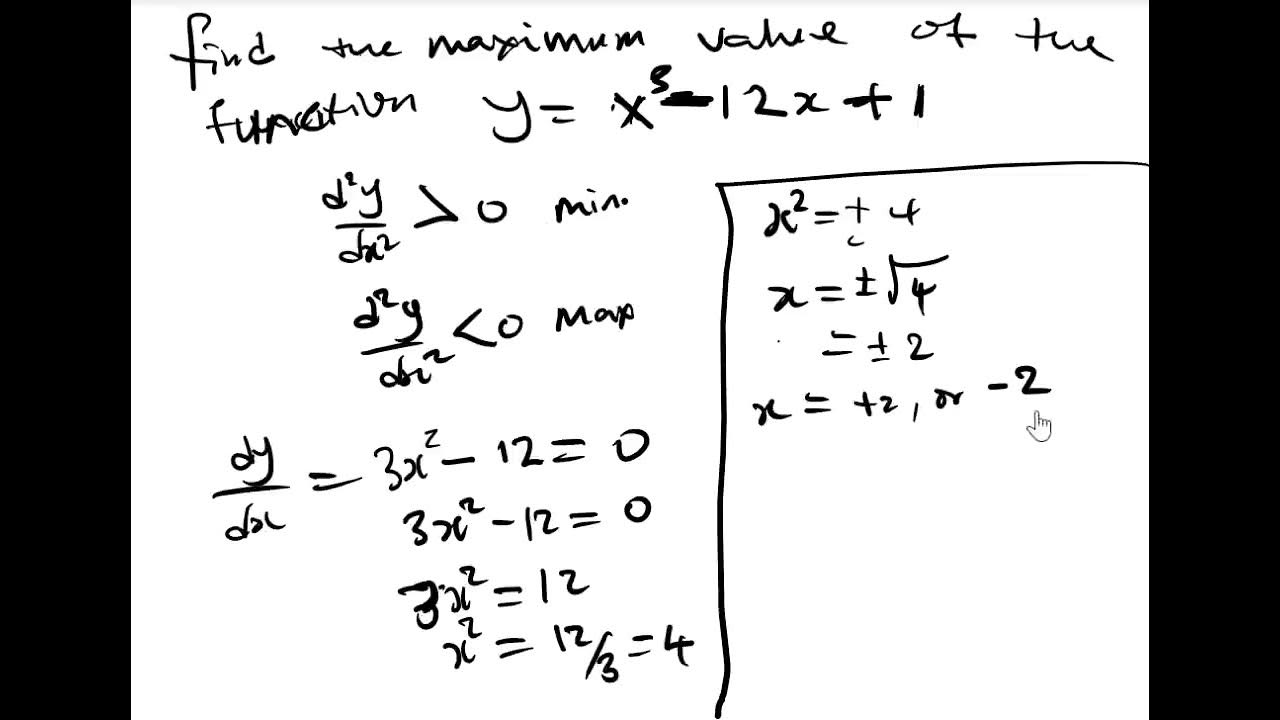 find the maximum value of the
function y = x³ - 12x + 1
d²y/dx² > 0 min.
d²y/dx² < 0 max
dy/dx = 3x² - 12 = 0
3x² - 12 = 0
3x² = 12
x² = 12/3 = 4
x² = + 4
x = ±√4
= ± 2
x = +2, or -2